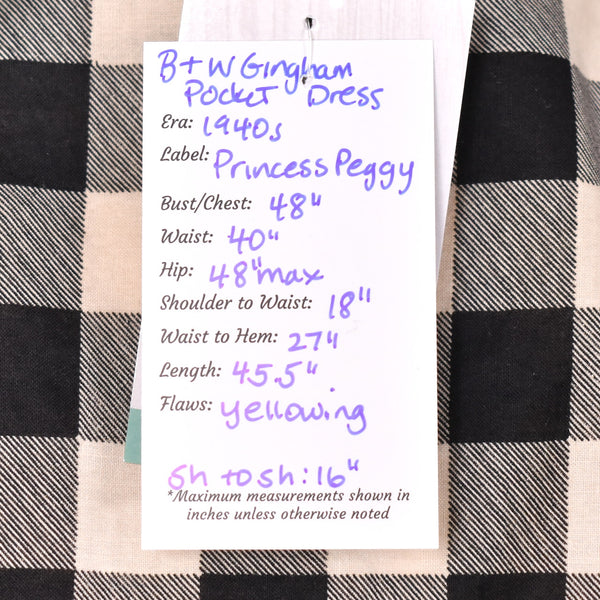 B+W Gingham
Pocket Dress
Era: 1940s
Label: Princess Peggy
Bust/Chest: 48"
Waist: 40"
Hip: 48" max
Shoulder to Waist: 18"
Waist to Hem: 27"
Length: 45.5"
Flaws: yellowing
Sh to sh: 16"
*Maximum measurements shown in
inches unless otherwise noted